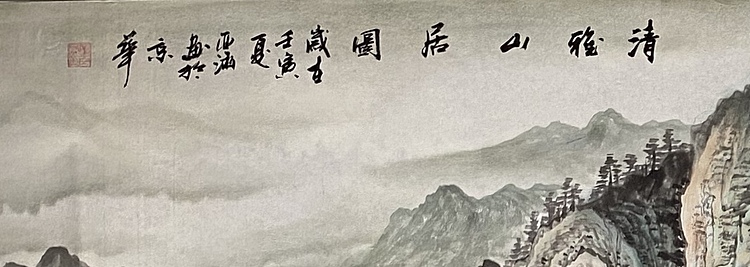 清雅山居圖
歲在
壬寅
夏
亚涵
画於
京
華